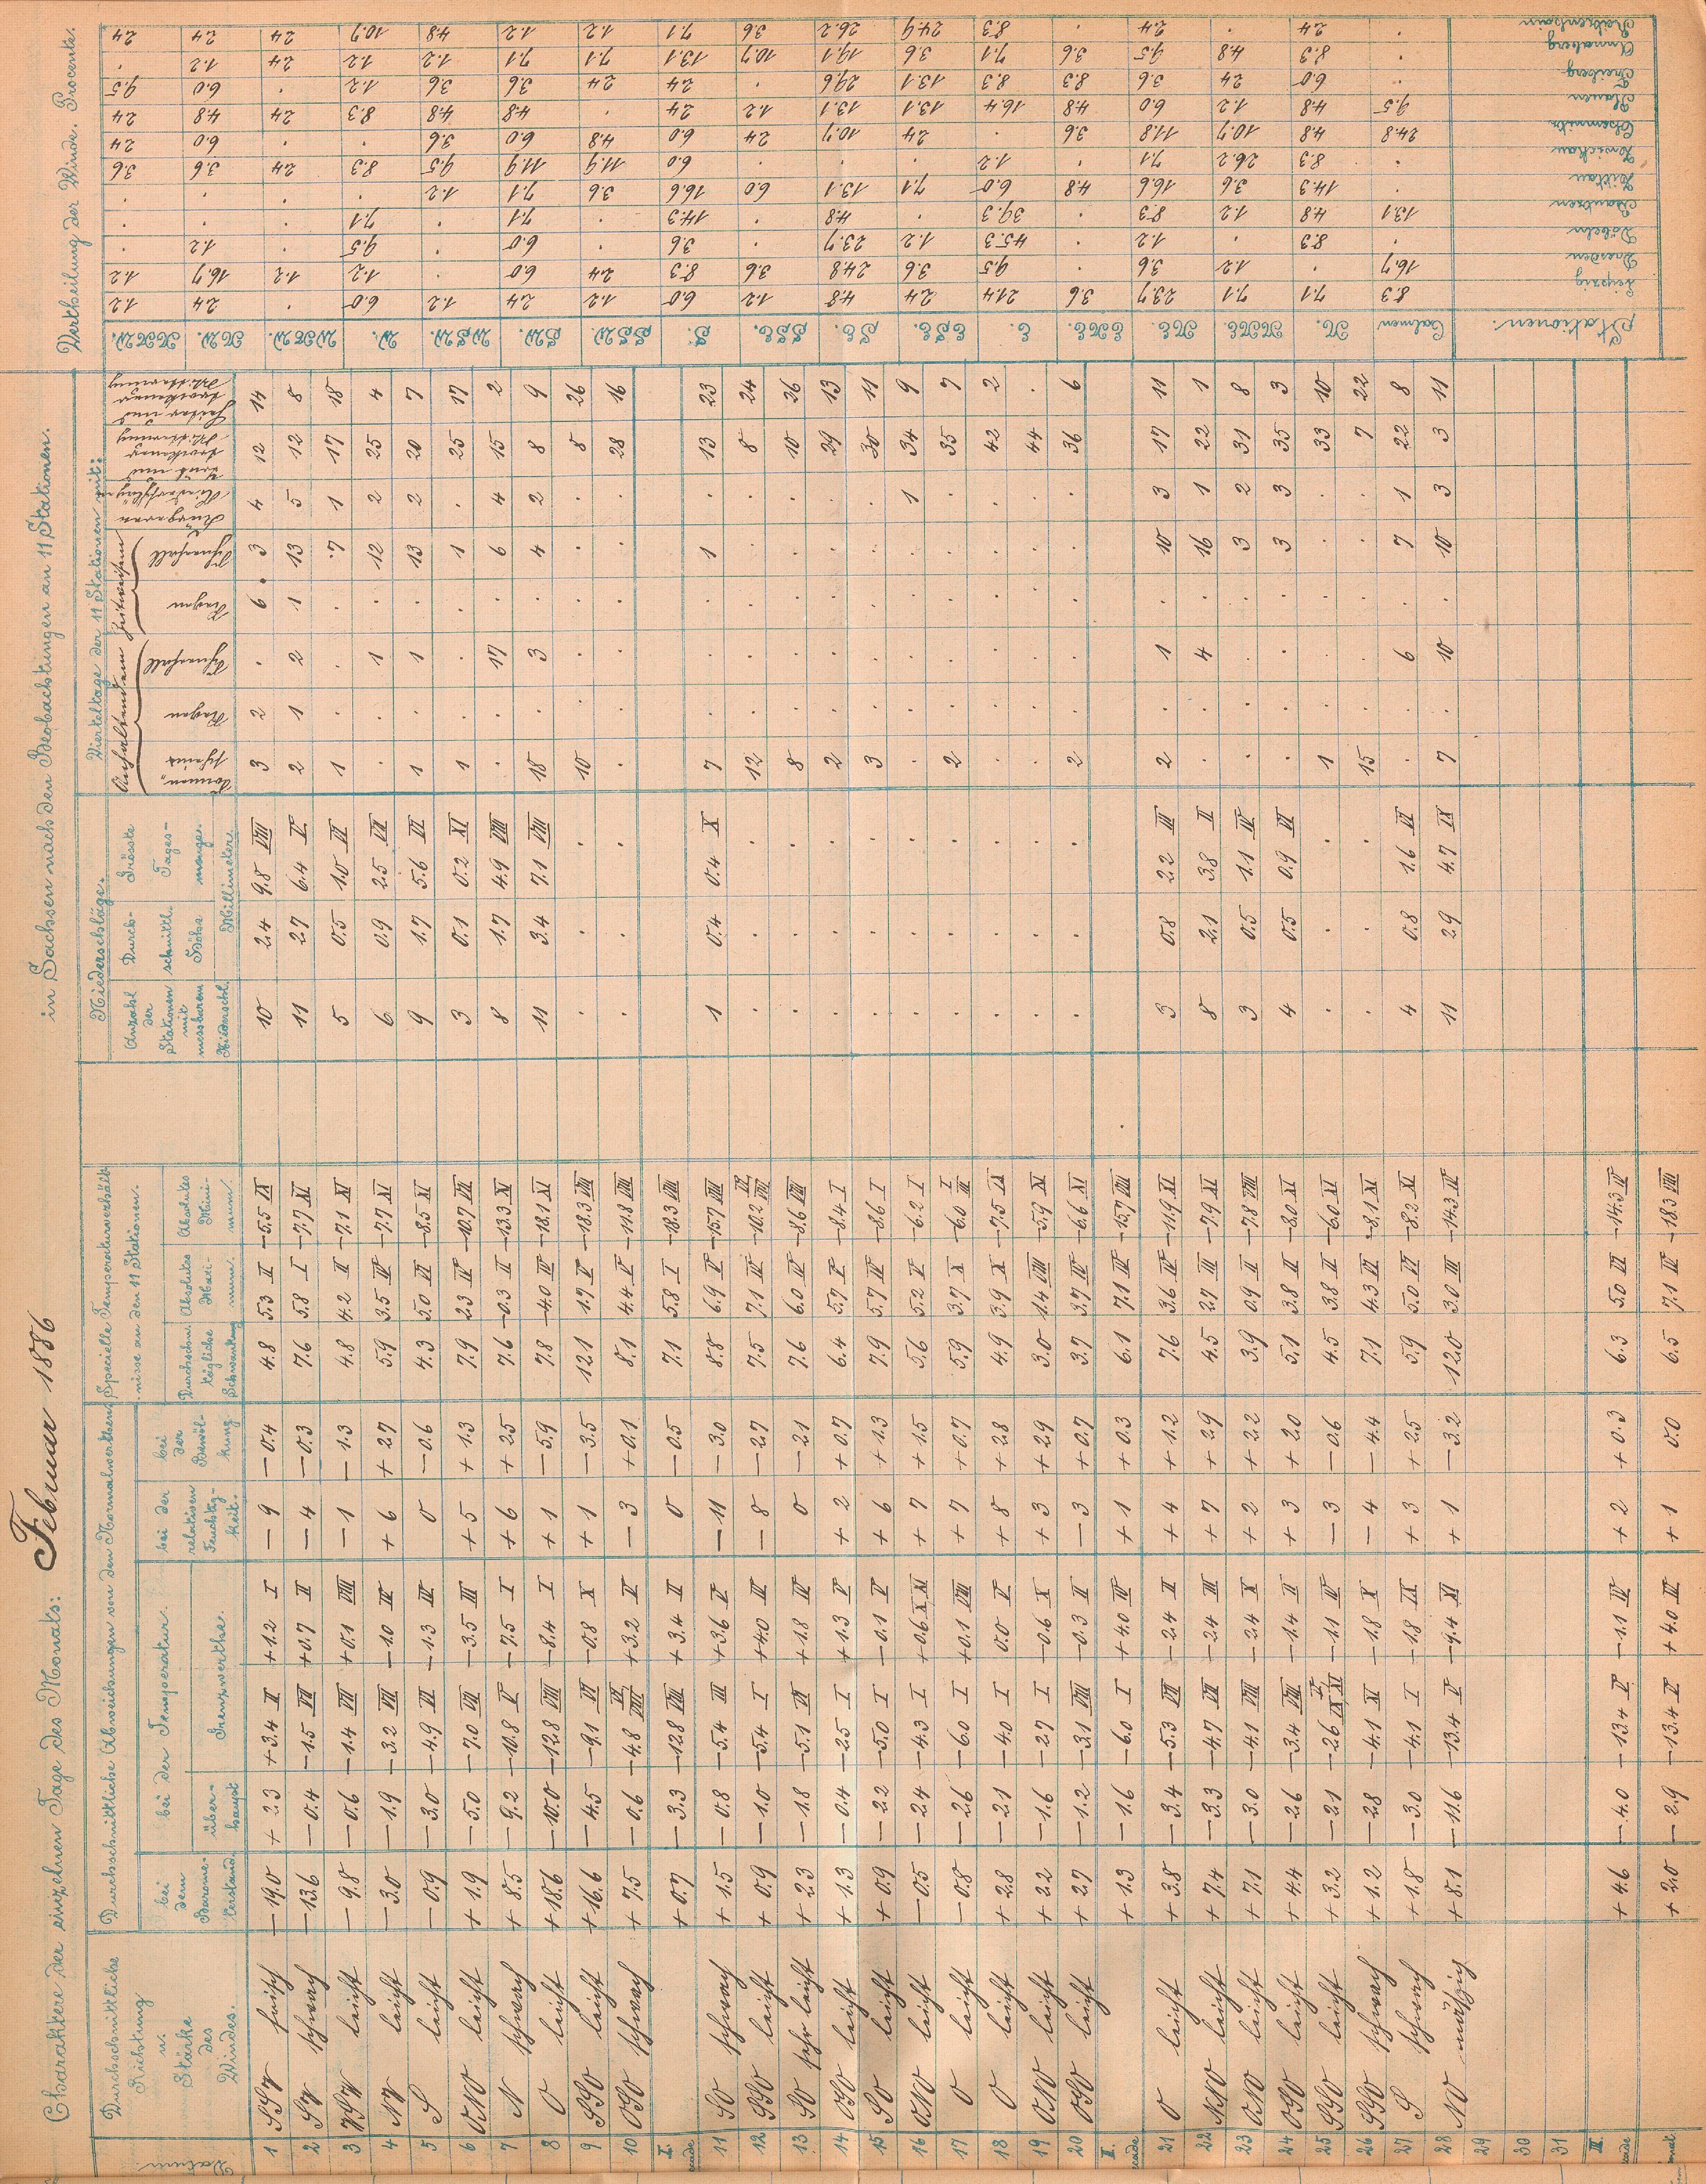 Charaktere der einzelnen Tage des Monats: Februar 1886 in Sachsen nach den Beobachtungen an 11 Stationen.
Durchschnittliche Richtung u. Stärke des Windes.
Durchschnittliche Abweichungen von den Normalwerthen
bei dem Barometerstand.
bei der Temperatur.
überhaupt
Grenzwerthe.
bei der relativen Feuchtigkeit.
bei der Bewölkung
Specielle Temperaturverhältnisse an den 11 Stationen.
Durchschn. tägliche Schwankung
Absolutes Maximum.
Absolutes Minimum.
Niederschläge.
Anzahl der Stationen mit messbarem Niederschl.
Durchschnittl. Höhe
Grösste Tagesmenge.
Millimeter.
Vierteltage der 11 Stationen mit:
1 SSW frisch −19.0 +2.3 +3.4 V +1.2 I −9 −0.4 4.8 5.3 II −5.5 IX 10 2.4 9.8 VIII 3 2 . 6 3 4 12 14
2 SW schwach −13.6 −0.4 −1.5 VI +0.7 II −4 −0.3 7.6 5.8 I −7.7 XI 11 2.7 6.4 V 2 1 2 1 13 5 12 8
3 WSW leicht −9.8 −0.6 −1.4 VIII +0.1 VIII −1 −1.3 4.8 4.2 II −7.1 XI 5 0.5 1.0 VI 1 . . . 7 1 17 18
4 NW leicht −3.0 −1.9 −3.2 VII −1.0 IV +6 +2.7 5.9 3.5 IV −7.7 XI 6 0.9 2.5 VII . . 1 . 12 2 25 4
5 S leicht −0.9 −3.0 −4.9 VI −1.3 IV 0 −0.6 4.3 5.0 VI −8.5 XI 9 1.7 5.6 VI 1 . 1 . 13 2 20 7
6 ONO leicht +1.9 −5.0 −7.0 VII −3.5 III +5 +1.3 7.9 2.3 IV −10.7 VII 3 0.1 0.2 XI 1 . . . 1 . 25 17
7 N schwach +8.5 −9.2 −10.8 V −7.5 I +6 +2.5 7.6 −0.3 II −13.3 XI 8 1.7 4.9 VIII . . 17 . 6 4 15 2
8 O leicht +18.6 −10.0 −12.8 VIII −8.4 I +1 −5.9 7.8 −4.0 IV −18.1 XI 11 3.4 7.1 VIII 18 . 3 . 4 2 8 9
9 SSO leicht +16.6 −4.5 −9.1 VI −0.8 X +1 −3.5 12.1 1.7 V −18.3 VIII . . . 10 . . . . . 8 26
10 OSO schwach +7.5 −0.6 −4.8 +3.2 V −3 +0.1 8.1 4.4 V −11.8 VIII . . . . . . . . . 28 16
I. +0.7 −3.3 −12.8 VIII +3.4 II 0 −0.5 7.1 5.8 I −18.3 VIII
11 SO schwach +1.5 −0.8 −5.4 III +3.6 V −11 −3.0 8.8 6.9 V −15.7 VIII 1 0.4 0.4 X 7 . . . 1 . 13 23
12 SSO leicht +0.9 −1.0 −5.4 I +4.0 IV −8 −2.7 7.5 7.1 IV −10.2 . . . 12 . . . . . 8 24
13 SO sehr leicht +2.3 −1.8 −5.1 VI +1.8 IV 0 −2.1 7.6 6.0 IV −8.6 VIII . . . 8 . . . . . 10 26
14 OSO leicht +1.3 −0.4 −2.5 I +1.3 V +2 +0.7 6.4 5.7 V −8.4 I . . . 2 . . . . . 29 13
15 SO leicht +0.9 −2.2 −5.0 I −0.1 V +6 +1.3 7.9 5.7 IV −8.6 I . . . 3 . . . . . 30 11
16 ONO leicht −0.5 −2.4 −4.3 I +0.6 X XI +7 +1.5 5.6 5.2 V −6.2 I . . . . . . . . 1 34 9
17 O leicht −0.8 −2.6 −6.0 I +0.1 VIII +7 +0.7 5.9 3.7 X −6.0 I III . . . 2 . . . . . 35 7
18 O leicht +2.8 −2.1 −4.0 I 0.0 V +8 +2.8 4.9 3.9 X −7.5 IX . . . . . . . . . 42 2
19 ONO leicht +2.2 −1.6 −2.7 I −0.6 X +3 +2.9 3.0 1.4 VIII −5.9 XI . . . . . . . . . 44 .
20 OSO leicht +2.7 −1.2 −3.1 VIII −0.3 II −3 +0.7 3.7 3.7 IV −6.6 XI . . . 2 . . . . . 36 6
II. +1.3 −1.6 −6.0 I +4.0 IV +1 +0.3 6.1 7.1 IV −15.7 VIII
21 O leicht +3.8 −3.4 −5.3 VII −2.4 II +4 +1.2 7.6 3.6 IV −11.9 XI 3 0.8 2.2 III 2 . 1 . 10 3 17 11
22 NNO leicht +7.4 −3.3 −4.7 VII −2.4 III +7 +2.9 4.5 2.7 III −7.9 XI 8 2.1 3.8 II . . 4 . 16 1 22 1
23 ONO leicht +7.1 −3.0 −4.1 VIII −2.4 X +2 +2.2 3.9 0.9 II −7.8 VIII 3 0.5 1.1 IV . . . . 3 2 31 8
24 OSO leicht +4.4 −2.6 −3.4 VIII −1.4 II +3 +2.0 5.1 3.8 II −8.0 XI 4 0.5 0.9 VI . . . . 3 3 35 3
25 SSO leicht +3.2 −2.1 −2.6 −1.1 IV −3 −0.6 4.5 3.8 II −6.0 XI . . . 1 . . . . . 33 10
26 SSO schwach +1.2 −2.8 −4.1 XI −1.8 X −4 −4.4 7.1 4.3 VI −8.1 XI . . . 15 . . . . . 7 22
27 S schwach +1.8 −3.0 −4.1 I −1.8 IX +3 +2.5 5.9 5.0 VI −8.2 XI 4 0.8 1.6 VI . . 6 . 7 1 22 8
28 NO mäßig +8.1 −11.6 −13.4 V −9.4 XI +1 −3.2 12.0 3.0 III −14.3 IV 11 2.9 4.7 IX 7 . 10 . 10 3 3 11
29
30
31
III. +4.6 −4.0 −13.4 V −1.1 IV +2 +0.3 6.3 5.0 VI −14.3 IV
+2.0 −2.9 −13.4 V +4.0 IV +1 0.0 6.5 7.1 IV −18.3 VIII
Vertheilung der Winde. Procente.
Stationen. Calmen N. NNE. NE. ENE. E. ESE. SE. SSE. S. SSW. SW. WSW. W. WNW. NW. NNW.
Leipzig 8.3 7.1 7.1 23.7 3.6 21.4 2.4 4.8 1.2 6.0 1.2 2.4 1.2 6.0 . 2.4 1.2
Dresden 16.7 . 1.2 3.6 . 9.5 3.6 24.8 3.6 8.3 2.4 6.0 . 1.2 1.2 16.7 1.2
Döbeln . 8.3 . 1.2 . 45.3 1.2 23.7 . 3.6 . 6.0 . 9.5 . 1.2 .
Bautzen 13.1 4.8 1.2 8.3 . 39.3 . 4.8 . 14.3 . 7.1 . 7.1 . . .
Zittau . 14.3 3.6 16.6 4.8 6.0 7.1 13.1 6.0 16.6 3.6 7.1 1.2 . . . .
Zwickau . 8.3 26.2 7.1 . 1.2 . . . 6.0 11.9 11.9 9.5 8.3 2.4 3.6 3.6
Chemnitz 24.8 4.8 10.7 11.8 3.6 . 2.4 10.7 2.4 6.0 4.8 6.0 3.6 . . 6.0 2.4
Plauen 9.5 4.8 1.2 6.0 4.8 16.4 13.1 13.1 1.2 2.4 . 4.8 4.8 8.3 2.4 4.8 2.4
Freiberg . 6.0 2.4 3.6 8.3 8.3 13.1 29.6 . 2.4 2.4 3.6 3.6 1.2 . 6.0 9.5
Annaberg . 8.3 4.8 9.5 3.6 7.1 3.6 19.1 10.7 13.1 7.1 7.1 1.2 1.2 2.4 1.2 .
Reitzenhain . 2.4 . 2.4 . 8.3 24.9 26.2 3.6 7.1 1.2 1.2 4.8 10.7 2.4 2.4 2.4